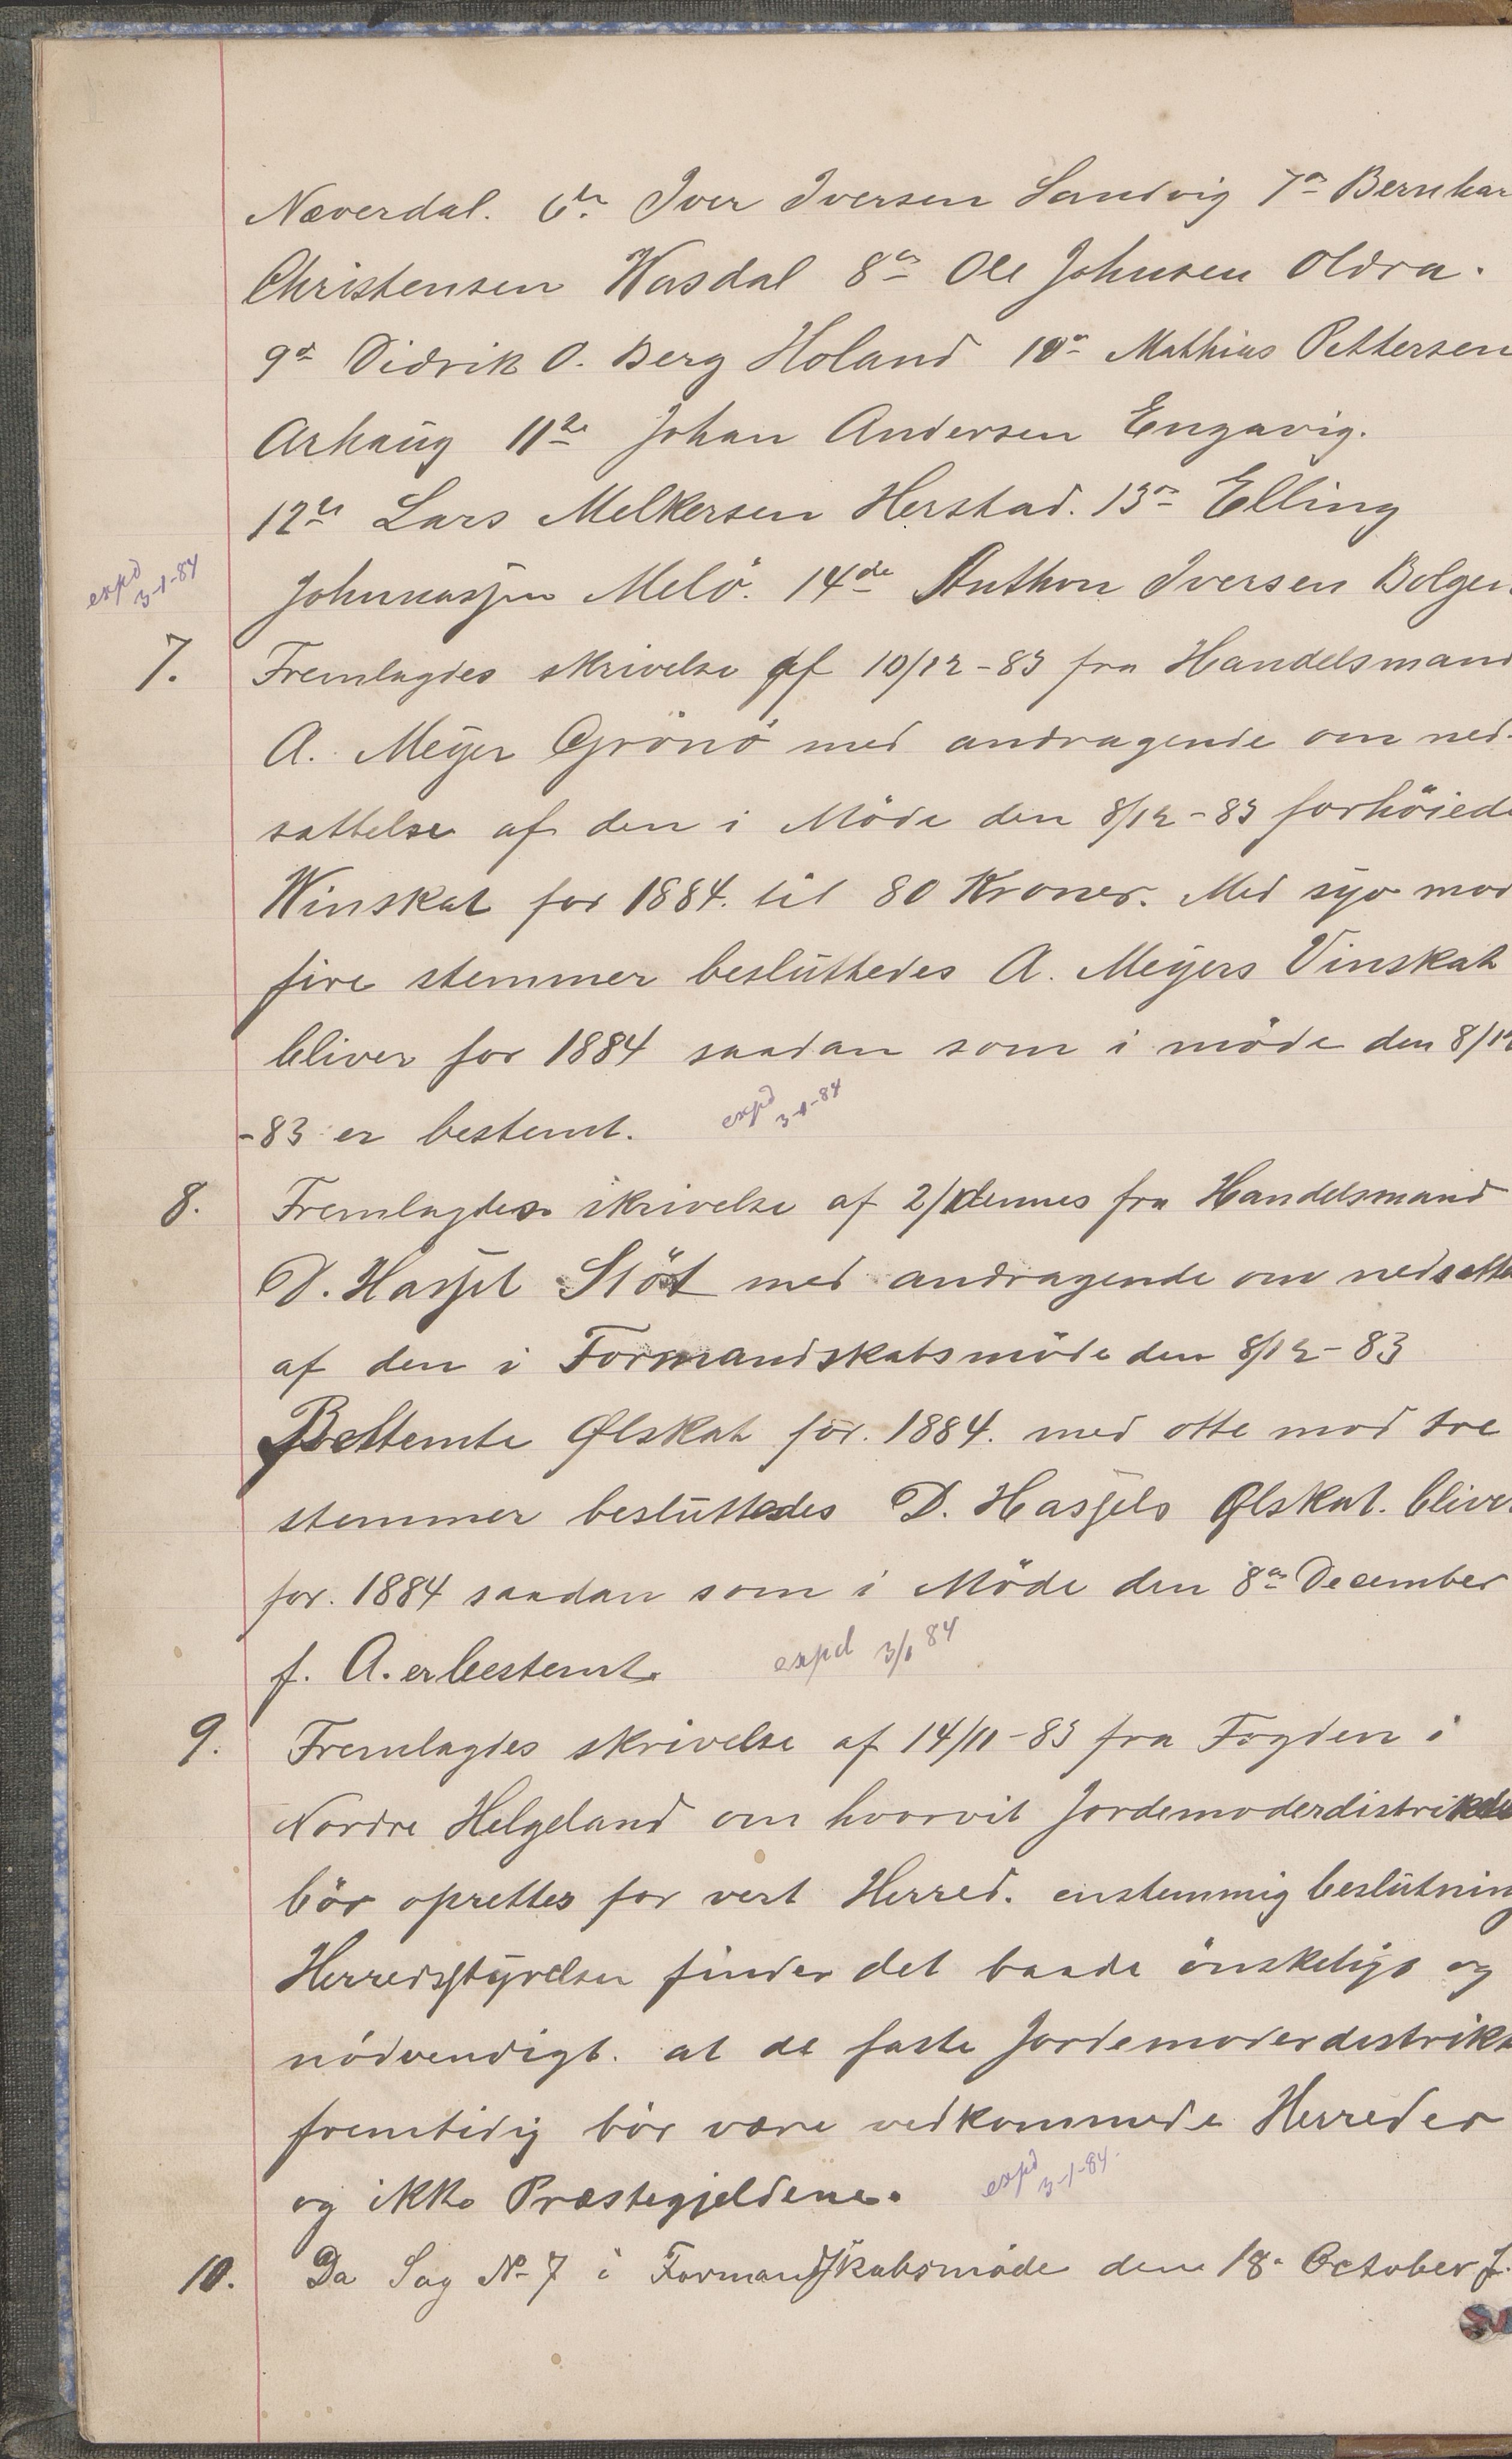 Næverdal. 6te Iver Iversen Sandvig 7de Bernhar
Christensen Wasdal 8de Ole Johnsen Oldra.
9de Didrik O. Berg Holand 10de Mathias Pettersen
Arhaug 11te Johan Andersen Engavig.
12te Lars Melkersen Herstad. 13de Elling
Johnnassen Melö. 14de Anthon Iversen Bolgen
expd 3-1-84
7. Fremlagdes skrivelse af 10/12-83 fra Handelsmand
A. Meyer Grönö med andragende om ned-
sættelse af den i Möde den 8/12-83 forhöiede
Winskat for 1884. til 80 Kroner. Med syv mod
fire stemmer besluttedes A. Meyers Vinskat
bliver for 1884 saadan som i möde den 8/12
-83 er bestemt. expd 3-1-84
8. Fremlagdes skrivelse af 2/1 dennes fra Handelsmand
D. Hassel Stöt med andragende om nedsætte
af den i Formandskabsmöde den 8/12-83
Bestemte Ølskat for. 1884. med otte mod tre
stemmer besluttedes D. Hassels Ølskat. bliver
for. 1884 saadan som i Möde den 8de December
f. A. er bestemt. expd 3/1 84
9. Fremlagdes skrivelse af 14/11-83 fra Fogden i
Nordre Helgeland om hvorvit Jordemoderdistrikte
bör oprettes for vert Herred. enstemmig beslutning
Herredsstyrelsen finder det baade önskeligt og
nödvendigt. at de faste Jordemoderdistrikt
fremtidig bör være vedkommede Herreder
og ikke Præstegjeldene. expd 3-1-84.
10. Da Sag No 7 i Formandskabsmöde den 18. October f.